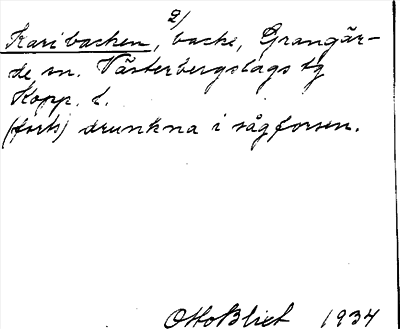 2/
Karibacken, backe, Grangär-
de sn. Västerbergslags tg
Kopp. l.
(forts) drunkna i sågforsen.
Otto Blixt 1934